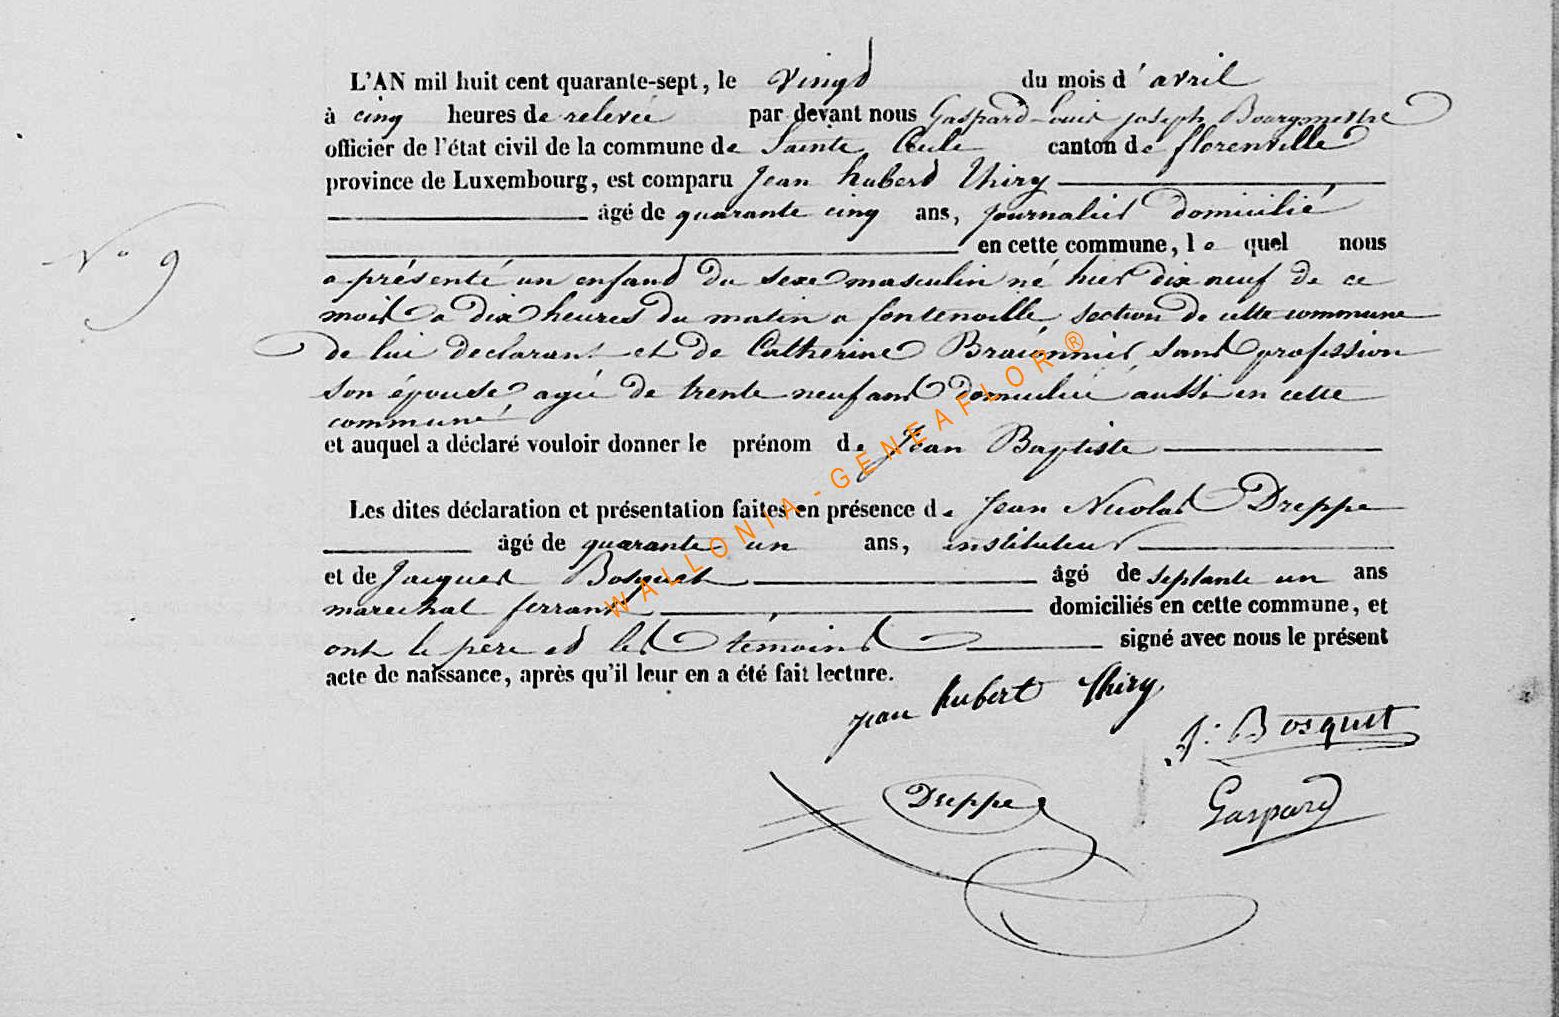 L'AN mil huit cent quarante-sept, le vingt du mois d'avril
à cinq heures de relevée par devant nous Gaspard Louis joseph Bourgmestre
officier de l'état civil de la commune de Sainte Cecile canton de florenville
province de Luxembourg, est comparu Jean hubert Thiry
âgé de quarante cinq ans, journalier domicilié
en cette commune, le quel nous
N° 9
a présenté un enfant du sexe masculin né hier dix neuf de ce
mois a dix heures du matin a fontenoille section de cette commune
de lui declarant et de Catherine sans profession
son épouse agée de trente neuf ans domiciliée aussi en cette
commune
et auquel a déclaré vouloir donner le prénom de Jean Baptiste
Les dites déclaration et présentation faites en présence de Jean Nicolas Dreppe
âgé de quarante un ans, instituteur
et de Jacques Bosquet âgé de septante un ans
marechal ferrant domiciliés en cette commune, et
ont le père et les témoins signé avec nous le présent
acte de naissance, après qu'il leur en a été fait lecture.
jean hubert thiry
J: Bosquet
Dreppe
Gaspard
WALLONIA-GENEAFLOR®